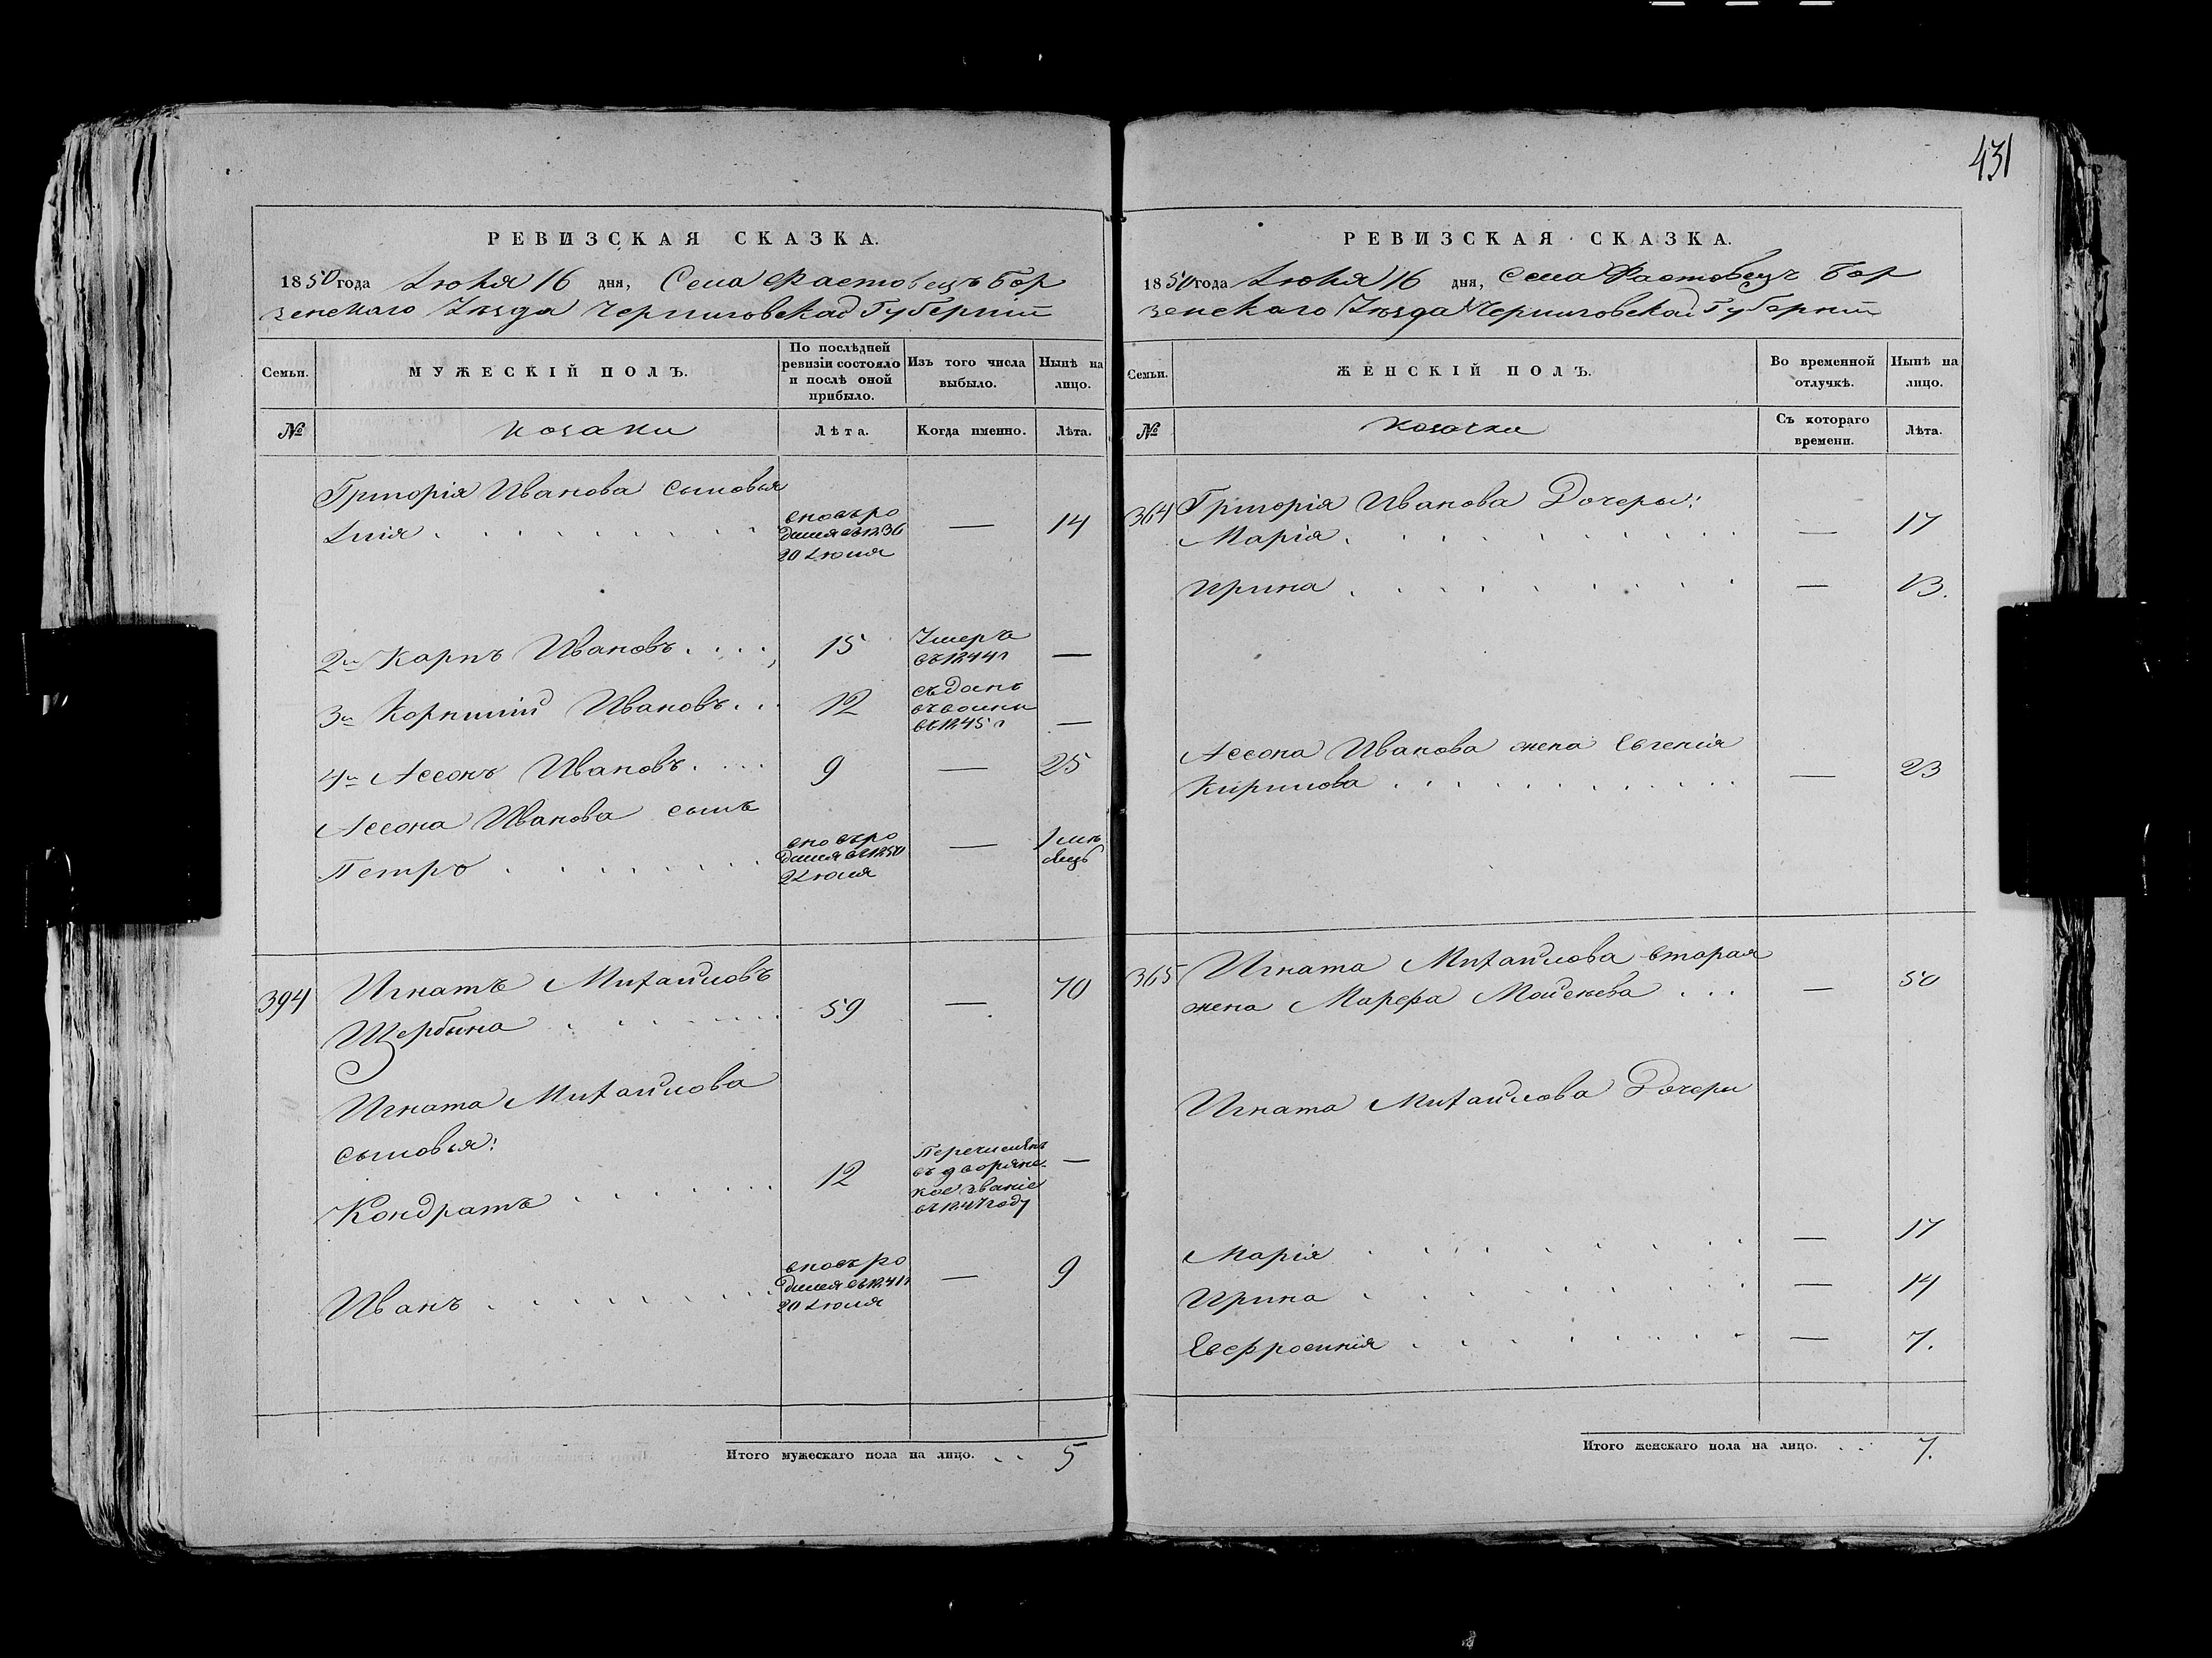 431
РЕВИЗСКАЯ СКАЗКА.
1850 года Іюня 16 дня, Села Фастовецъ Бор
зенскаго Уѣзда Черниговской Губерніи
Семьи.
МУЖЕСКІЙ ПОЛЪ.
По послѣдней ревизіи состояло и послѣ оной прибыло.
Изъ того числа выбыло.
Нынѣ на лицо.
№
козаки
Лѣта.
Когда именно.
Лѣта.
Григорія Иванова сыновья
Илія
вновь ро
дился въ 1836
20 Іюля
—
14
2й Карпъ Ивановъ
15
Умеръ
въ 1844 г
—
3й Корнилій Ивановъ
12
съданъ
въ воины
въ 1845 г
—
4й Ассонъ Ивановъ
9
—
25
Ассона Иванова сынъ
Петръ
вновь ро
дился въ 1850
2 Іюля
—
1 мѣ
сяцъ
394
Игнатъ Михайловъ
Щербина
59
—
70
Игната Михайлова
сыновья:
Кондратъ
12
Перечисленъ
въ дворянс
кое званіе
въ 1847 году
—
Иванъ
вновь ро
дился въ 1841 г
20 Іюля
—
9
Итого мужескаго пола на лицо. . . 5
РЕВИЗСКАЯ СКАЗКА.
1850 года Іюня 16 дня, Села Фастовецъ Бор
зенскаго Уѣзда Черниговской Губерніи
Семьи.
ЖЕНСКІЙ ПОЛЪ.
Во временной отлучкѣ.
Нынѣ на лицо.
№
козачки
Съ котораго времени.
Лѣта.
364
Григорія Иванова Дочеры:
Марія — 17
Ирина — 13.
Ассона Иванова жена Евгенія
Кирилова — 23
365
Игната Михайлова вторая
жена Марфа Моисеева — 50
Игната Михайлова Дочери
Марія — 17
Ирина — 14
Евфросинія — 7.
Итого женскаго пола на лицо. . . 7.